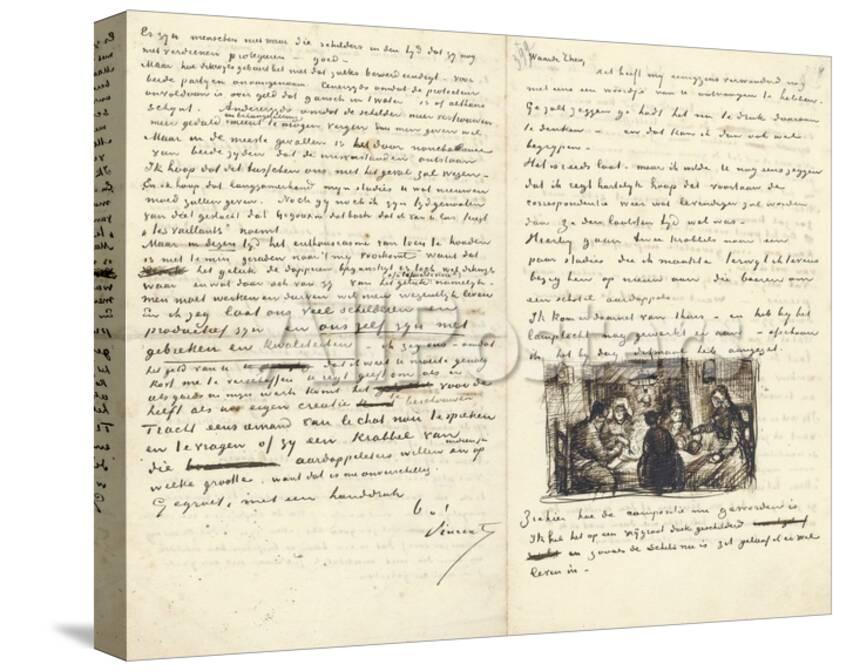 Er zijn menschen niet waar die schilders in den tijd dat zij nog
niet verdienen protegeeren – goed –
Maar hoe dikwijls gebeurt het niet dat zulks beroerd eindigt – voor
beide partijen onaangenaam. Eenerzijds omdat de protecteur
onvoldaan is over geld dat gansch in 't water is of althans
schijnt. Anderzijds omdat de schilder meer vertrouwen
meer geduld meer belangstelling meent te mogen vergen dan men geven wil.
Maar in de meeste gevallen is het door nonchalance
van beide zijden dat de misverstanden ontstaan
Ik hoop dat dit tusschen ons niet het geval zal wezen –
En ik hoop dat langzamerhand mijn studies U wat nieuwen
moed zullen geven. Noch gij noch ik zijn tijdgenooten
van dat geslacht dat
„les vaillants" noemt
Maar in dezen tijd het enthousiasme van toen te houden
is niet te min geraden naar 't mij voorkomt want dat
het geluk de dapperen begunstigt is toch wel dikwijls
waar en wat daar ook van zij van het geluk namelijk –
men moet werken en durven wil men wezenlijk leven
En ik zeg laat ons veel schilderen en
productief zijn en ons zelf zijn met
gebreken en kwaliteiten – ik zeg ons – omdat
het geld van U dat ik weet U moeite genoeg
kost me te verschaffen U regt geeft om als er
iets goeds in mijn werk komt het voor de
helft als uw eigen creatie te beschouwen
Tracht eens iemand van le chat noir te spreken
en te vragen of zij een krabbel van
die aardappeleters willen en zoo
welke grootte. want dat is me onverschillig
Gegroet, met een handdruk
b. à t
Vincent
Waarde Theo,
het heeft mij eenigzins verwonderd nog
niet eens een woordje van U ontvangen te hebben.
Ge zult zeggen ge hadt het nu te druk daaraan
te denken – en dat kan ik dan ook wel
begrijpen.
Het is reeds laat maar ik wilde U nog eens zeggen
dat ik regt hartelijk hoop dat voortaan de
correspondentie weer wat levendiger zal worden
dan ze den laatsten tijd wel was –
Hierbij gaan twee krabbels naar een
paar studies die ik maakte terwijl ik tevens
bezig ben op nieuw aan die boeren om
een schotel aardappels
Ik kom er daarnet van thuis – en heb bij het
lamplicht nog gewerkt er aan – ofschoon
ik het bij dag ditmaal heb aangezet.
Ziehier hoe de compositie nu geworden is
Ik heb het op een vrij groot doek geschilderd
en zooals de schets nu is zit geloof ik er wel
leven in –
AllPosters